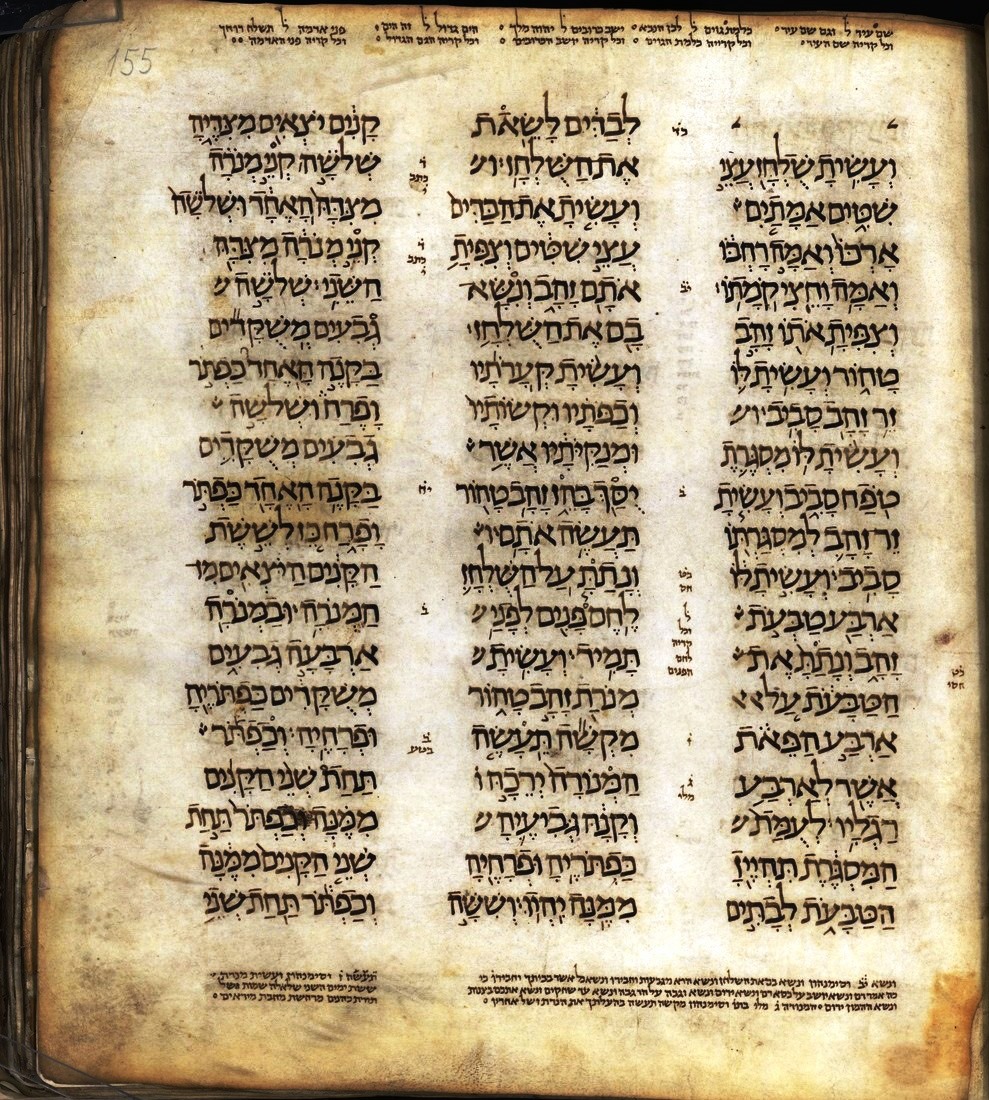 155
שם עיר ל וגם שם עיר
וכל קריה שם העיר
ישב כרובים ל יהוה מלך
וכל קריה יושב הכרובים
הים גדול ל זה הים
וכל קריה הים הגדול
פני אדמה ל תשלח רוחך
וכל קריה פני האדמה
ועשית שלחן עצי
שטים אמתים
ארכו ואמה רחבו
ואמה וחצי קמתו
וצפית אתו זהב
טהור ועשית לו
זר זהב סביב
ועשית לו מסגרת
טפח סביב ועשית
זר זהב למסגרתו
סביב ועשית לו
ארבע טבעת
זהב ונתת את
הטבעת על
ארבע הפאת
אשר לארבע
רגליו לעמת
המסגרת תהיין
הטבעת לבתים
לבדים לשאת
את השלחן
ועשית את הבדים
עצי שטים וצפית
אתם זהב ונשא
בם את השלחן
ועשית קערתיו
וכפתיו וקשותיו
ומנקיתיו אשר
יסך בהן זהב טהור
תעשה אתם
ונתת על השלחן
לחם פנים לפני
תמיד ועשית
מנרת זהב טהור
מקשה תעשה
המנורה ירכה
וקנה גביעיה
כפתריה ופרחיה
ממנה יהיו וששה
קנים יצאים מצדיה
שלשה קני מנרה
מצדה האחד ושלשה
קני מנרה מצדה
השני שלשה
גבעים משקדים
בקנה האחד כפתר
ופרח ושלשה
גבעים משקדים
בקנה האחד כפתר
ופרח כן לששת
הקנים היצאים מן
המנרה ובמנרה
ארבעה גבעים
משקדים כפתריה
ופרחיה וכפתר
תחת שני הקנים
ממנה וכפתר תחת
שני הקנים ממנה
וכפתר תחת שני